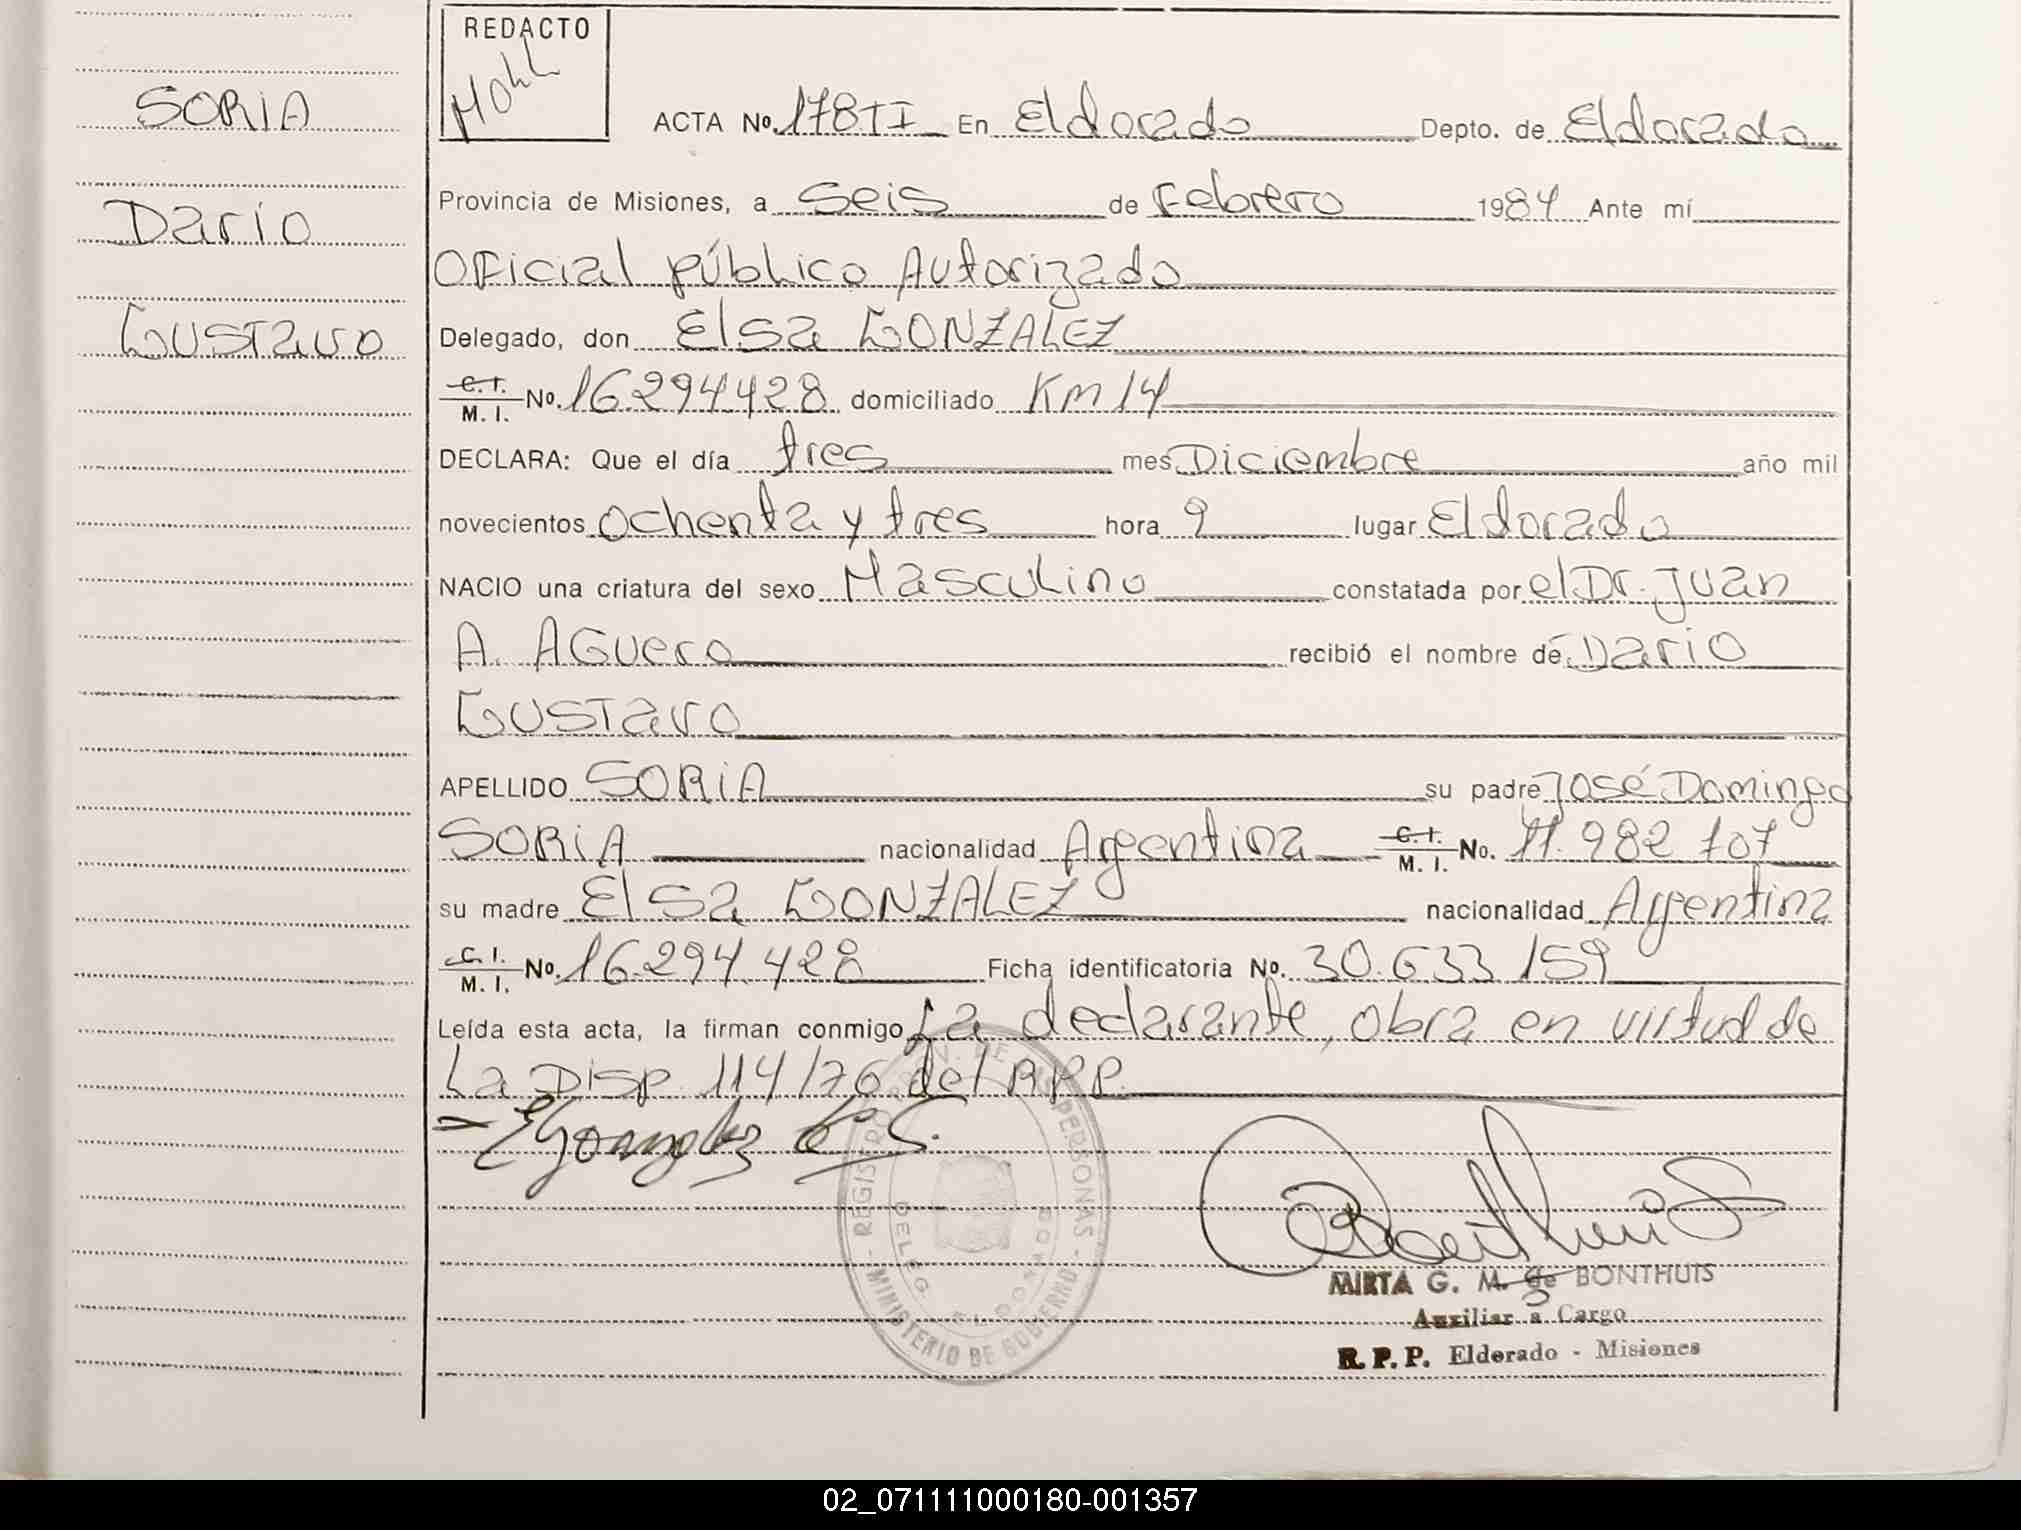 REDACTO
Mohl
SORIA
Dario
Gustavo
ACTA Nº. 178TI En Eldorado Depto. de Eldorado
Provincia de Misiones, a seis de Febrero 1984 Ante mí
Oficial público Autorizado
Delegado, don Elsa GONZALEZ
C.I. M.I. Nº. 16.294.428 domiciliado Km 14
DECLARA: Que el día tres mes Diciembre año mil
novecientos ochenta y tres hora 9 lugar Eldorado
NACIO una criatura del sexo Masculino constatada por el Dr. Juan
A. AGuero recibió el nombre de Dario
Gustavo
APELLIDO SORIA su padre José Domingo
SORIA nacionalidad Argentina C.I. M.I. No. 11.982 707
su madre Elsa GONZALEZ nacionalidad Argentina
C.I. M.I. Nº. 16.294.428 Ficha identificatoria Nº. 30.633 159
Leída esta acta, la firman conmigo La declarante, obra en virtud de
La Disp. 114/76 del RPP.
EGonzalez de S.
REGISTRO PROV. DE LAS PERSONAS
DELEG. ELDORADO
MINISTERIO DE GOBIERNO
MIRTA G. M. de BONTHUIS
Auxiliar a Cargo
R. P. P. Eldorado - Misiones
02_071111000180-001357